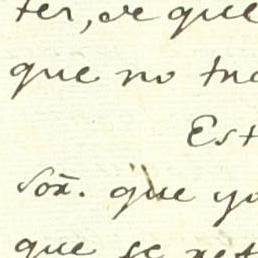 ter, de que
que no tra
Est
Soã. que yo
que se ret